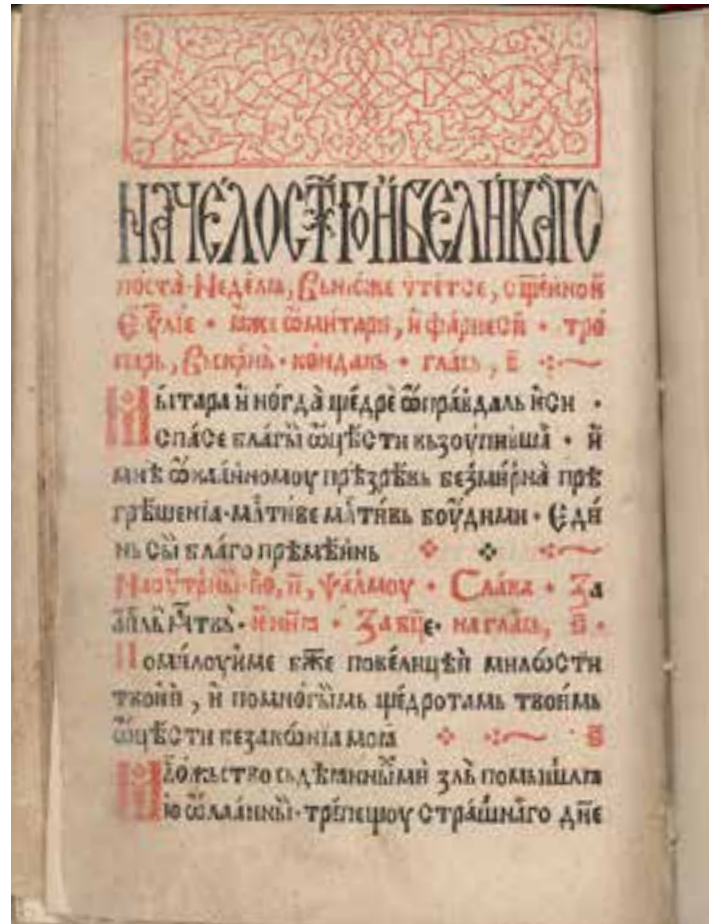 НАЧЕ́ЛО СТ҃ГО И҆ ВЕЛИ́КАГО
по́ста̀ · Неде́ліа, Вьню́же чтѐтсе, сщ҃е́нной
Еѵ҃ліе · и҆же ѿ мытари, и҆ фарисѐй · тро
парь, Вьскр҃нь · ко́ндакь · глась,
ытара и҆ногда̀ ще́дрѐ ѿпра́вдаль и҆си ·
спа́се благы́и ѿцѣсти вьзоупивша̀ · и҆
мнѣ̀ ѻ҆каа́нномоу прѣзрѣвь безмѣрна̀ прѣ
грѣшеніа · млⷭтиве млⷭтивь боу́ди ми · Еди́
нь сы́и благо прѣмѣ́нень
На оу҆трьни · по, н҃, ѱалмоу · Слава · За
а҆пⷭль мл҃твь · и҆ ни҃ıа · За бц҃е · на глⷭсь, в҃ ·
Поми́лоуй ме бж҃е по ве́лицѣй милѡсти
твоѐй, и҆ по мно́гыимь ще́дротамь твои́мь
ѡ҆цѣ́сти беззако́ніа моıа
Мно́жьство съдѣанныими злѣ помышлıа
ю ѻ҆каа́нныи · тре́пещоу стра́шнаго дн҃е